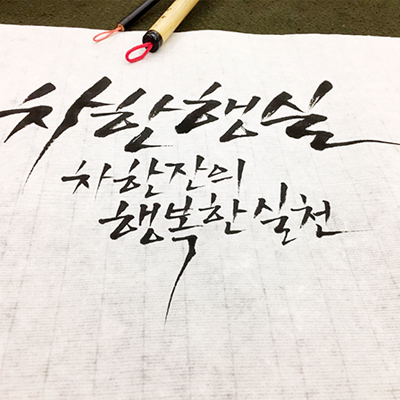 차한행실
차한잔의
행복한실천